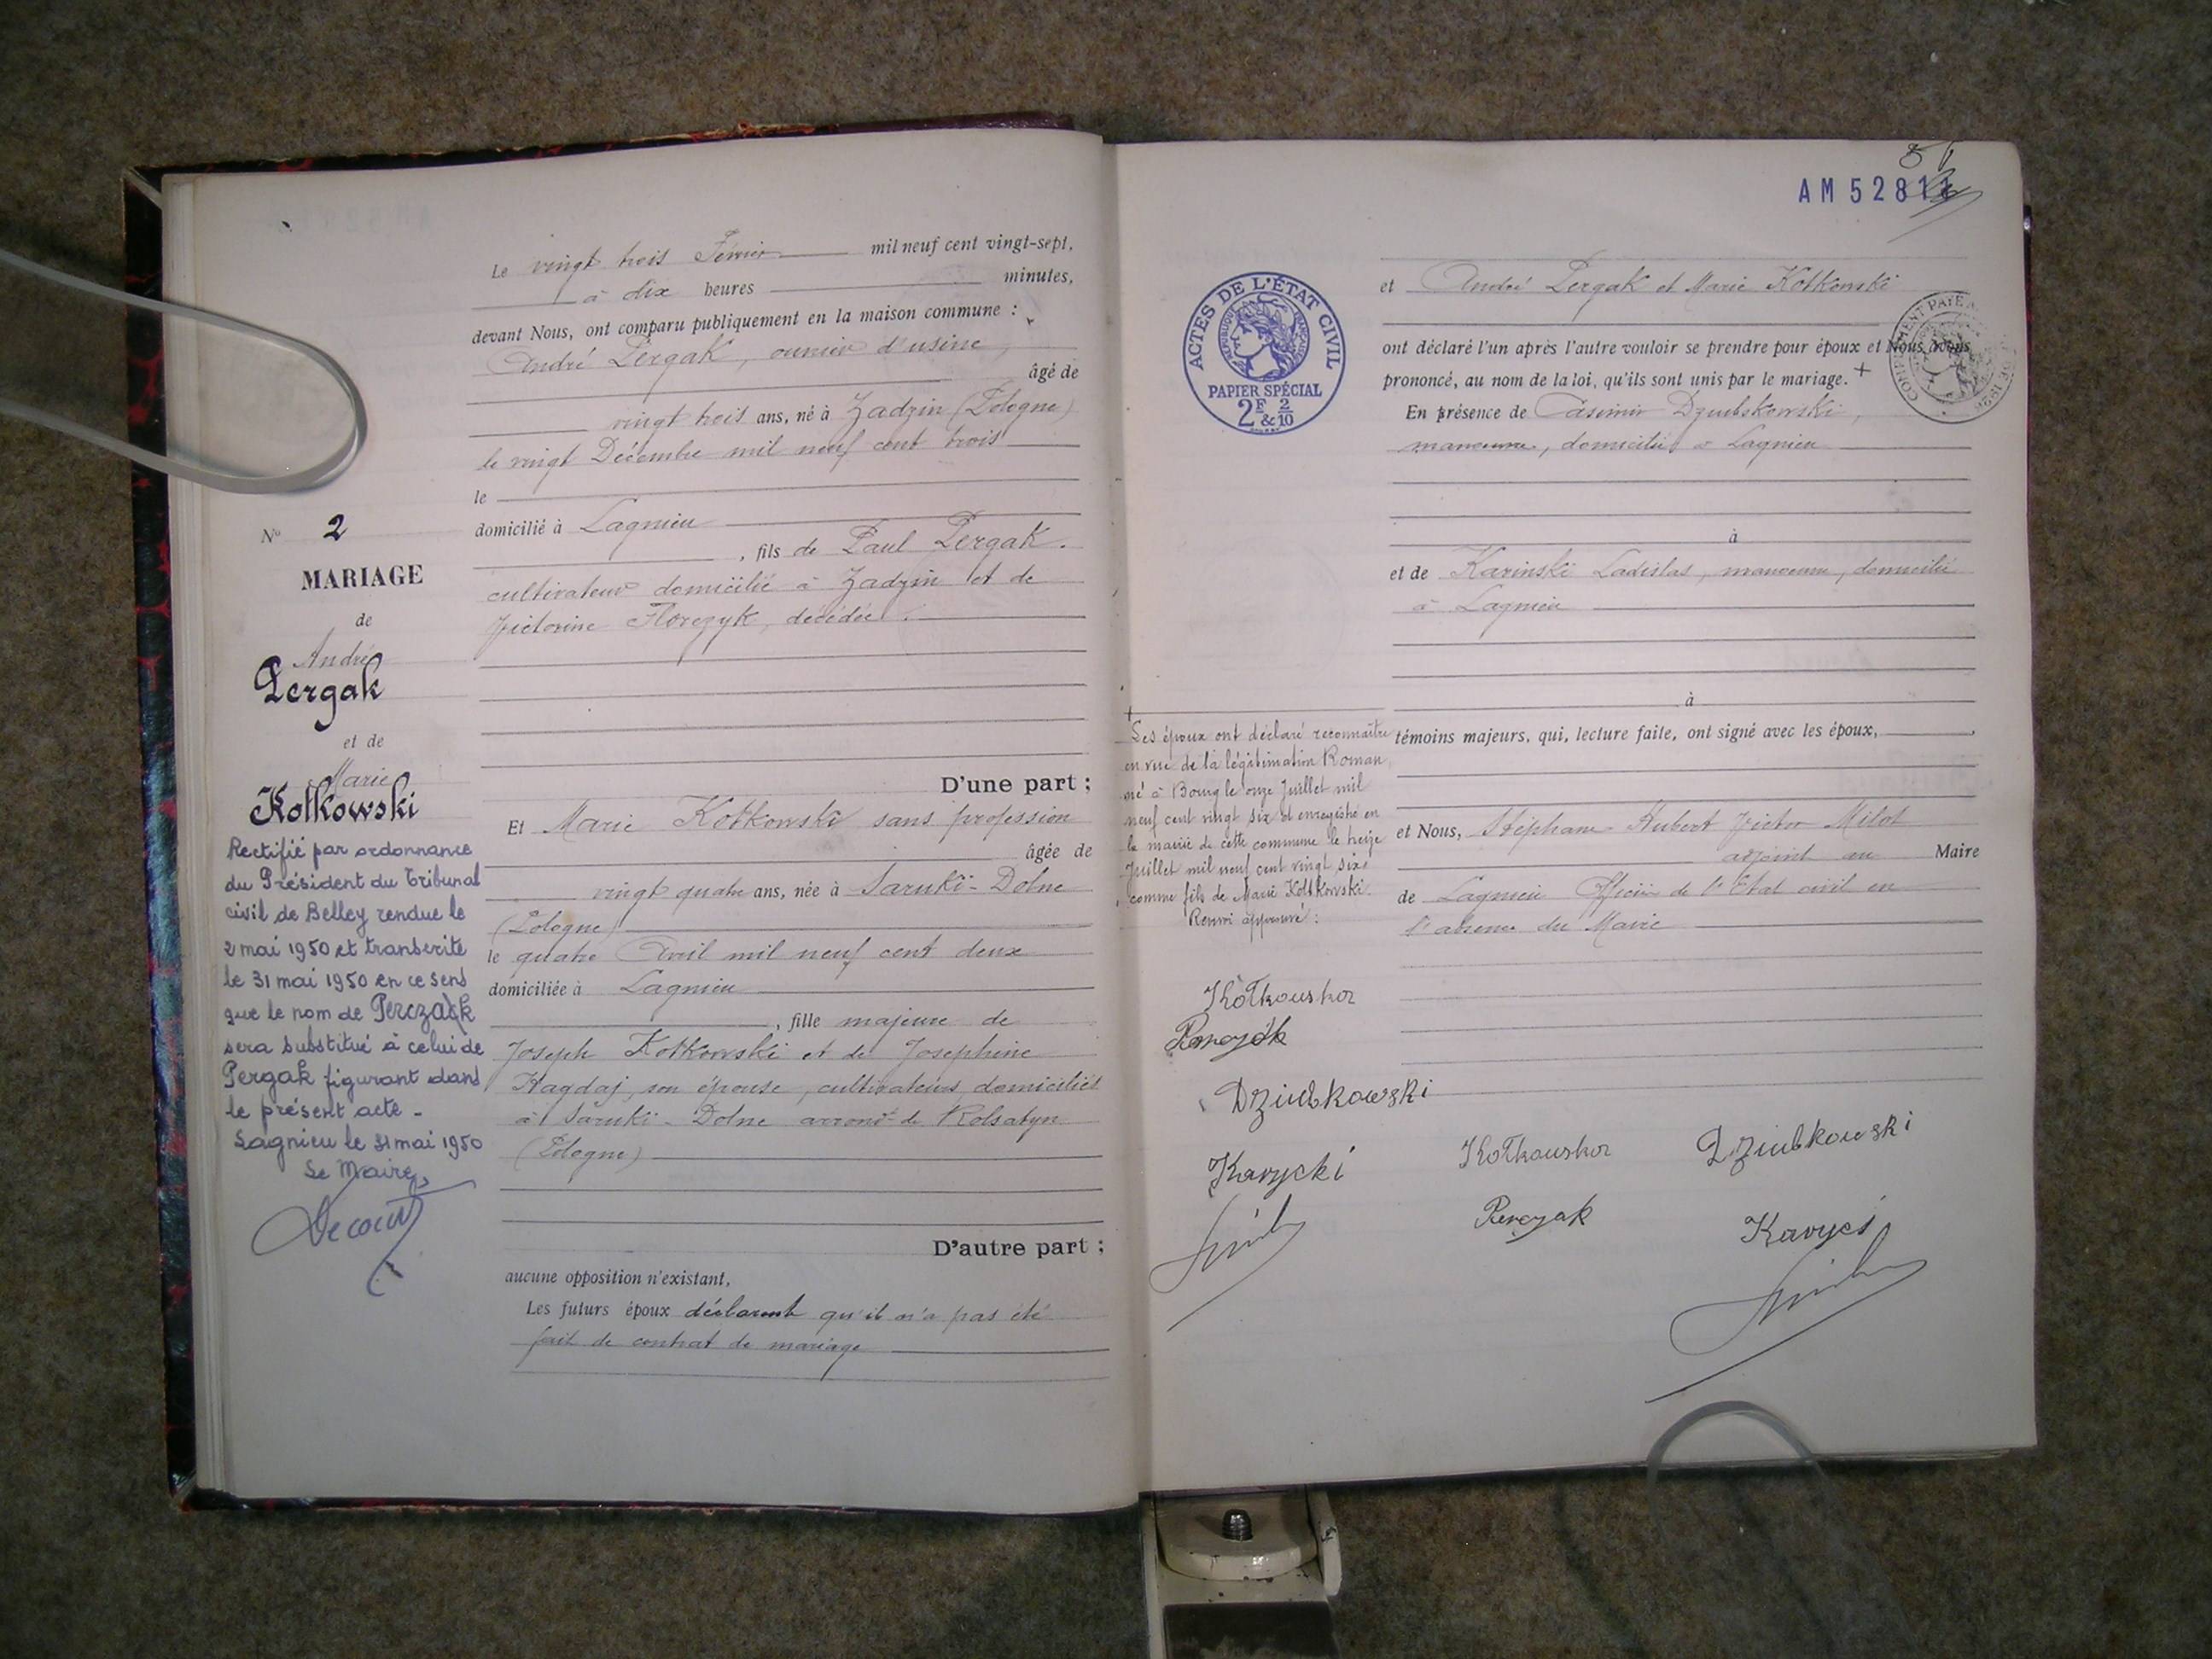 Le vingt trois Février mil neuf cent vingt-sept,
à dix heures minutes,
devant Nous, ont comparu publiquement en la maison commune :
André Pergak, ouvrier d'usine,
âgé de
vingt trois ans, né à Zadzin (Pologne)
le vingt Décembre mil neuf cent trois
le
domicilié à Lagnieu
, fils de Paul Pergak.
cultivateur domicilié à Zadzin et de
Victorine Florezyk, décédée.
D'une part ;
Et Marie Kotkowski sans profession
âgée de
vingt quatre ans, née à Saruki-Dolne
(Pologne)
le quatre Avril mil neuf cent deux
domiciliée à Lagnieu
, fille majeure de
Joseph Kotkowski et de Josephine
Hagdaj, son épouse, cultivateurs, domiciliés
à Saruki-Dolne arront de Rolsatyn
(Pologne)
D'autre part ;
aucune opposition n'existant,
Les futurs époux déclarent qu'il n'a pas été
fait de contrat de mariage
No 2
MARIAGE
de
André
Pergak
et de
Marie
Kotkowski
Rectifié par ordonnance
du Président du Tribunal
civil de Belley rendue le
2 mai 1950 et transcrite
le 31 mai 1950 en ce sens
que le nom de Perczak
sera substitué à celui de
Pergak figurant dans
le présent acte -
Lagnieu le 31 mai 1950
Le Maire,
AM 5281
ACTES DE L'ÉTAT CIVIL
RÉPUBLIQUE FRANÇAISE
PAPIER SPÉCIAL
2F & 2/10
et André Pergak et Marie Kotkowski
ont déclaré l'un après l'autre vouloir se prendre pour époux et Nous avons
prononcé, au nom de la loi, qu'ils sont unis par le mariage. +
En présence de Casimir Dziubekowski,
manœuvre, domicilié à Lagnieu
à
et de Karinski Ladislas, manœuvre, domicilié
à Lagnieu
à
témoins majeurs, qui, lecture faite, ont signé avec les époux,
et Nous, Stéphane Hubert Victor Milot
adjoint au Maire
de Lagnieu Officier de l'Etat civil en
l'absence du Maire
+
Les époux ont déclaré reconnaître
en vue de la légitimation Roman
né à Bourg le onze Juillet mil
neuf cent vingt six et enregistré en
la mairie de cette commune le treize
Juillet mil neuf cent vingt six
comme fils de Marie Kotkowski.
Renvoi approuvé :
Kotkouskor
Perczak
Dziubkowski
Karycki
Kotkouskor
Dziubkowski
Perczak